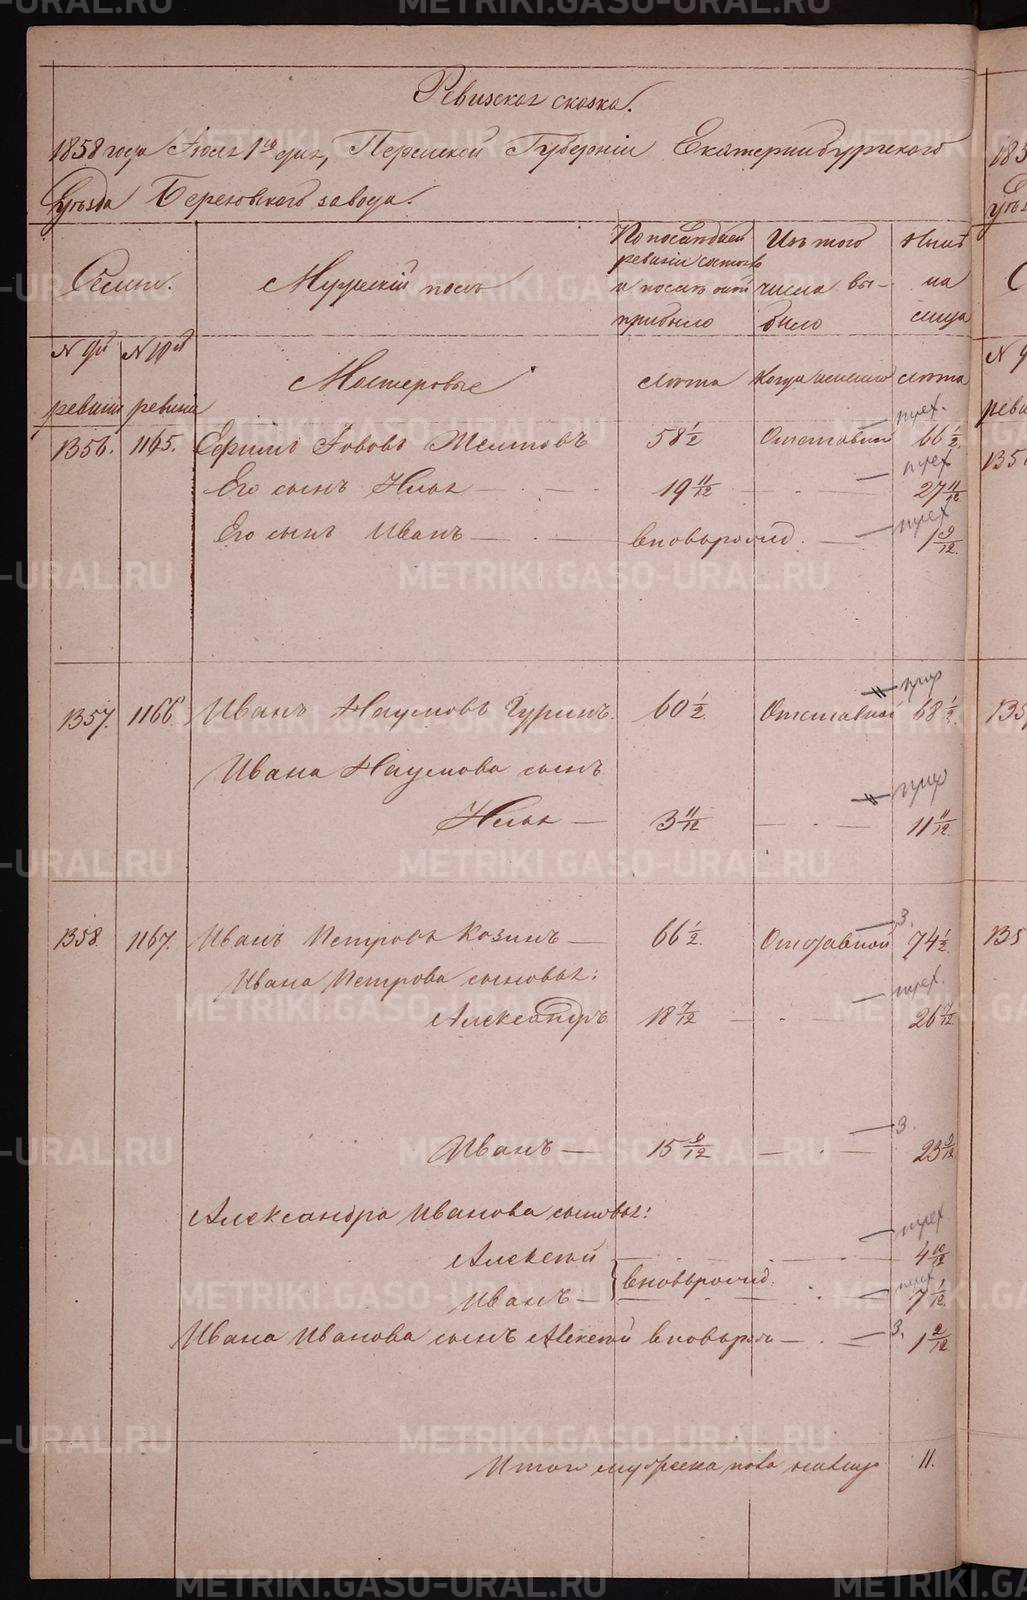 Ревизская сказка.
1858 года Июля 1го дня, Пермской Губерніи Екатеринбургского
Уѣзда Березовского завода.
Семьи.
Мужескій полъ
По послѣдней
ревизіи состояло
и послѣ оной
прибыло
Изъ того
числа вы-
было
Нынѣ
на
лицо
N 9й
ревизіи
N 10й
ревизіи
Мастеровые
лѣта
Когда именно
лѣта
1356. 1165. Ефимъ Іововъ 58 1/2 Отставной 66 1/2
Его сынъ Илья — 19 11/12 — 27 11/12
Его сынъ Иванъ — вновьрожд. — 1 9/12
1357. 1166 Иванъ Наумовъ Гуринъ. 60 1/2 Отставной 68 1/2
Ивана Наумова сынъ
Илья — 3 11/12 — 11 11/12
1358. 1167. Иванъ Петровъ Козинъ — 66 1/2 Отставной 3. 74 1/2
Ивана Петрова сыновья:
Александръ 18 7/12 — 26 7/12
Иванъ — 15 9/12 — 3. 23 9/12
Александра Иванова сыновья:
Алексѣй — 4 10/12
вновьрожд.
Иванъ — 7 1/12
Ивана Иванова сынъ Алексѣй вновьрож — 3. 1 2/12
Итого мужеска пола налицо 11.
METRIKI.GASO-URAL.RU